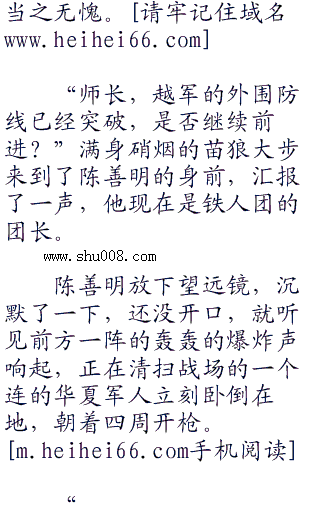 当之无愧。[请牢记住域名
www.heihei66.com]
“师长，越军的外围防
线已经突破，是否继续前
进？”满身硝烟的苗狼大步
来到了陈善明的身前，汇报
了一声，他现在是铁人团的
团长。
www.shu008.com
陈善明放下望远镜，沉
默了一下，还没开口，就听
见前方一阵的轰轰的爆炸声
响起，正在清扫战场的一个
连的华夏军人立刻卧倒在
地，朝着四周开枪。
[m.heihei66.com手机阅读]
“